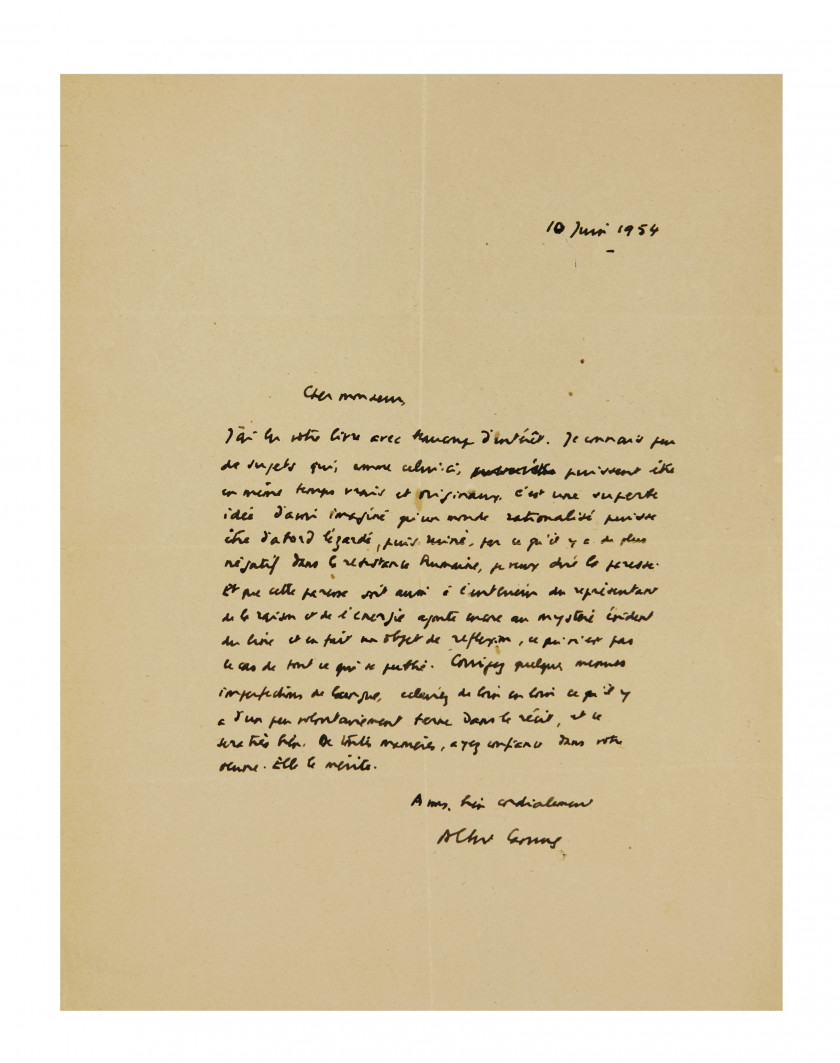 10 Juin 1954
Cher monsieur,
J'ai lu votre livre avec beaucoup d'intérêt. Je connais peu
de sujets qui, comme celui-ci, puissent être
en même temps vrais et originaux. C'est une superbe
idée d'avoir imaginé qu'un monde rationalisé puisse
être d'abord lézardé, puis miné, par ce qu'il y a de plus
négatif dans la résistance humaine, je veux dire la paresse.
Et que cette paresse soit aussi à l'intérieur du représentant
de la raison et de l'énergie ajoute encore au mystère évident
du livre et en fait un objet de reflexion, ce qui n'est pas
le cas de tout ce qui se publie. Corrigez quelques menues
imperfections de langue, de loin en loin ce qu'il y
a d'un peu volontairement terne dans le récit, et ce
sera très bien. De toutes manières, ayez confiance dans votre
oeuvre. Elle le mérite.
A vous, bien cordialement
Albert Camus